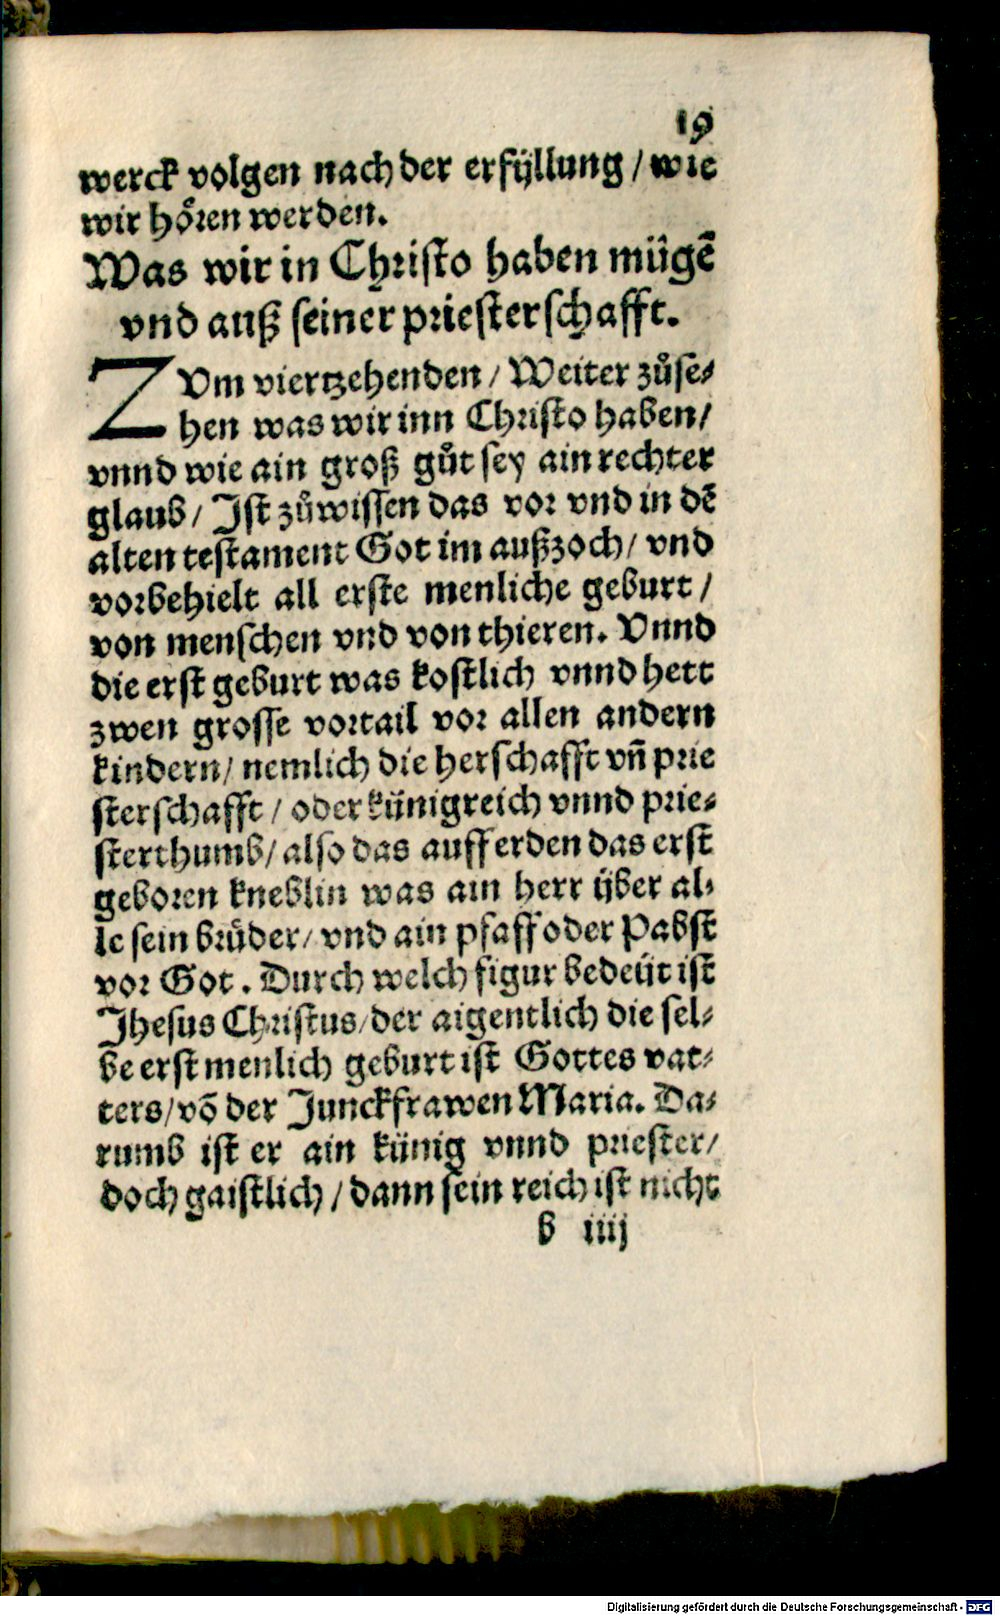 19
werck volgen nach der erfÿllung / wie
wir hoͤren werden.
Was wir in Christo haben muͤgē
vnd auß seiner priesterschafft.
ZVm viertzehenden / Weiter zuͦse⸗
hen was wir inn Christo haben /
vnnd wie ain groß guͦt sey ain rechter
glaub / Ist zuͦwissen das vor vnd in dē
alten testament Got im außzoch / vnd
vorbehielt all erste menliche geburt /
von menschen vnd von thieren. Vnnd
die erst geburt was kostlich vnnd hett
zwen grosse vortail vor allen andern
kindern / nemlich die herschafft vn̄ prie
sterschafft / oder künigreich vnnd prie⸗
sterthumb / also das auff erden das erst
geboren kneblin was ain herr ÿber al⸗
le sein bruͤder / vnd ain pfaff oder Pabst
vor Got. Durch welch figur bedeüt ist
Jhesus Christus / der aigentlich die sel⸗
be erst menlich geburt ist Gottes vat⸗
ters / vō der Junckfrawen Maria. Da⸗
rumb ist er ain künig vnnd priester /
doch gaistlich / dann sein reich ist nicht
b iiij
Digitalisierung gefördert durch die Deutsche Forschungsgemeinschaft - DFG